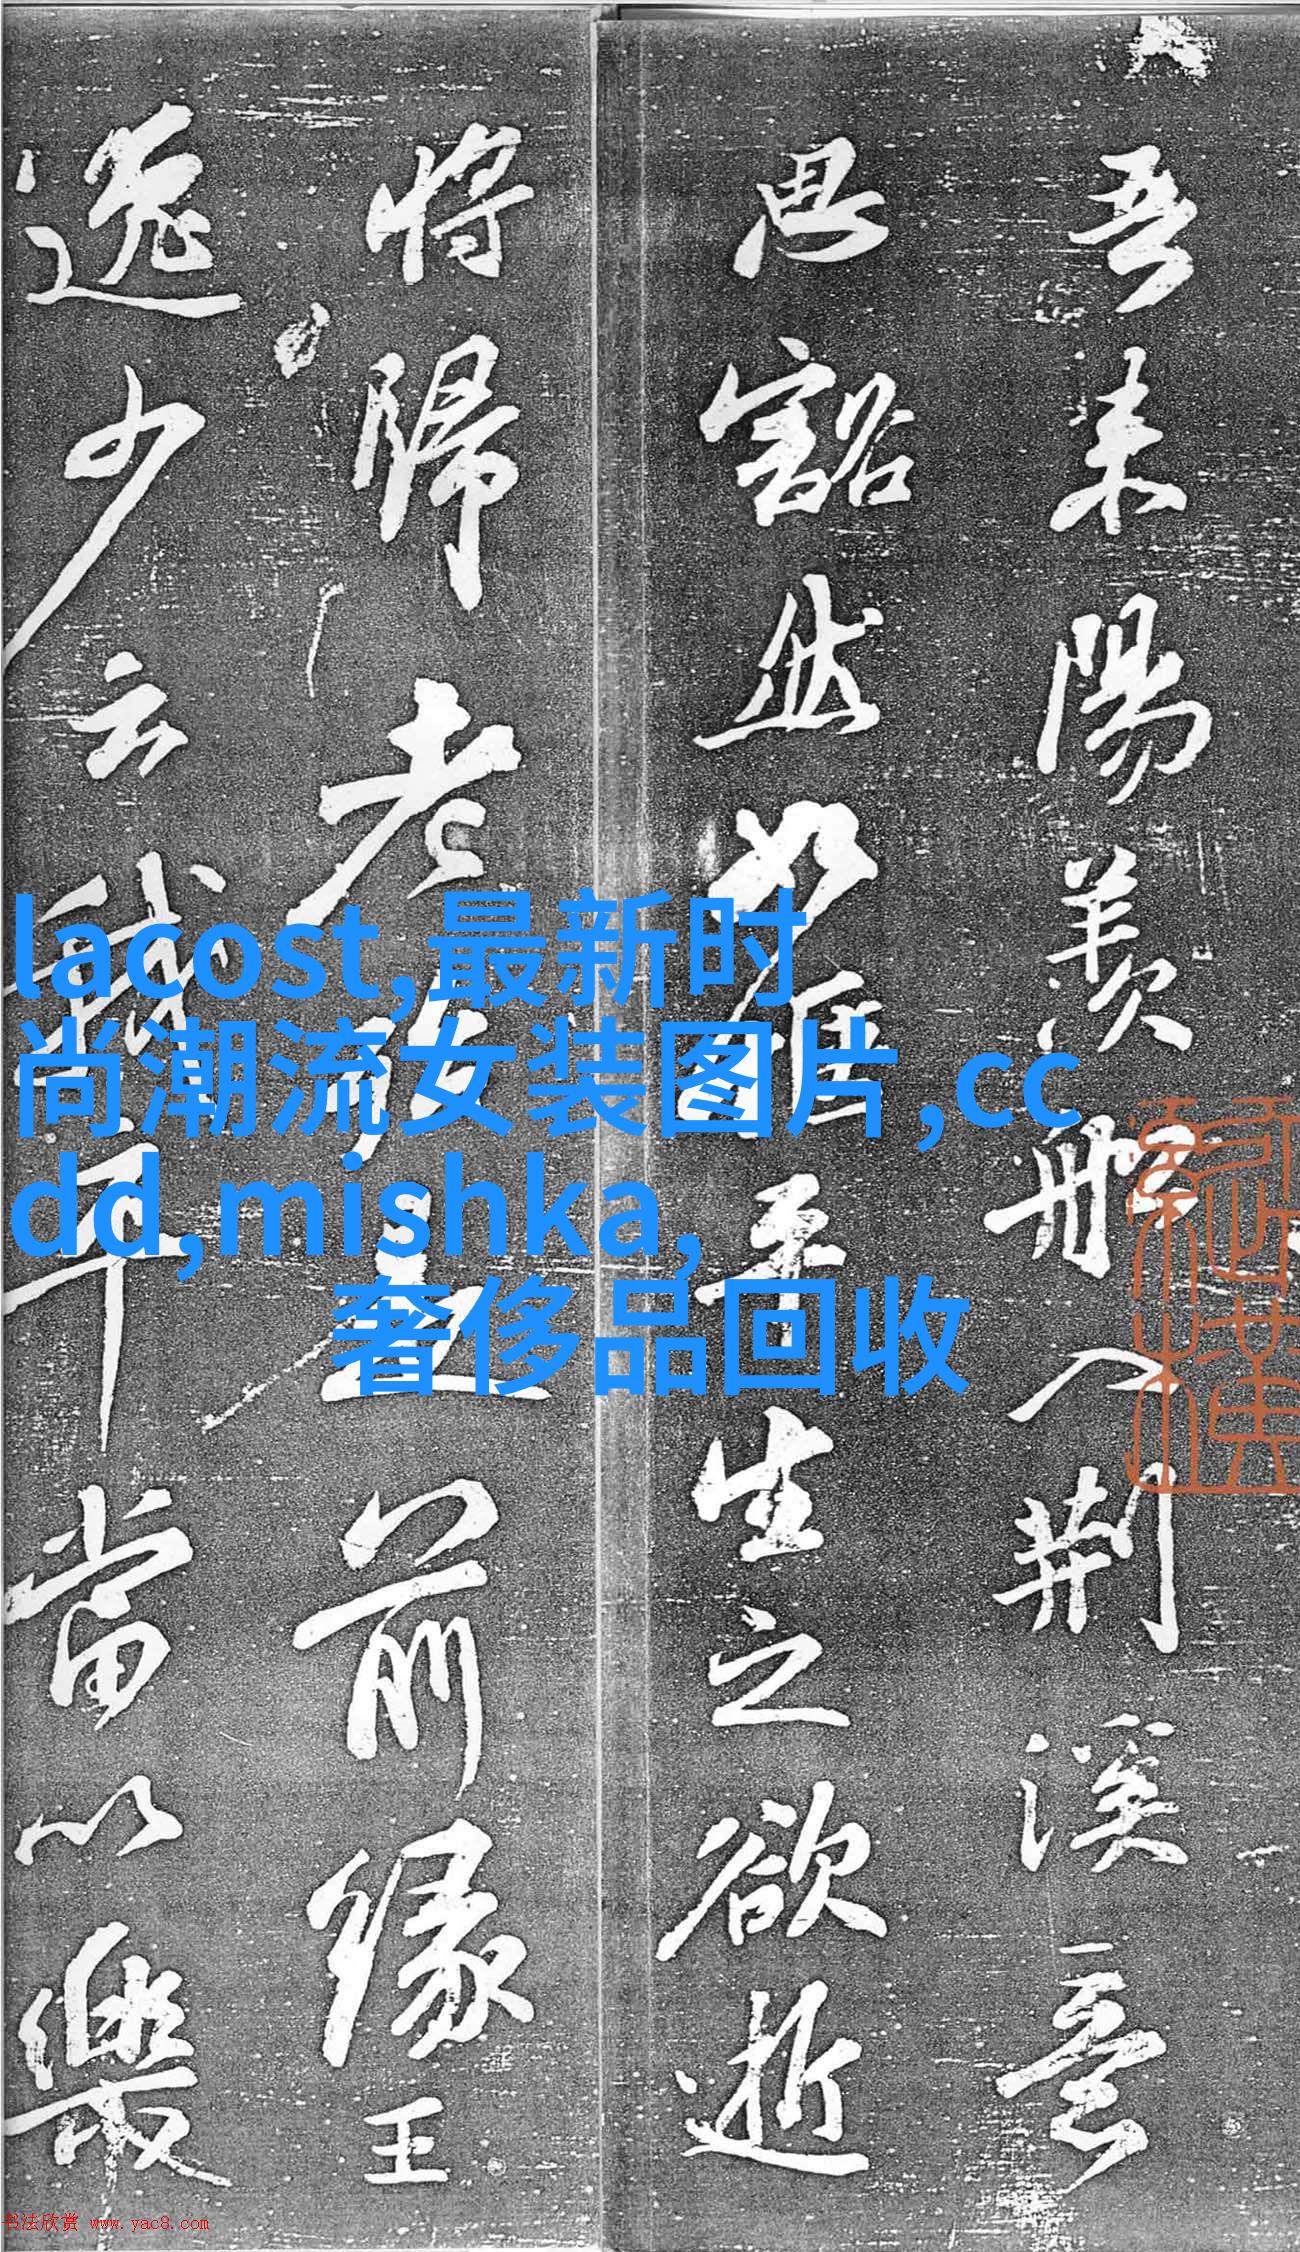 吾来陽羡船入荆溪意
思豁然如惬平生之欲逝
將歸老殆是前緣王
逸少云我卒當以樂
lacost,最新时
尚潮流女装图片,cc
dd,mishka,
奢侈品回收
书法欣赏 www.yac8.com